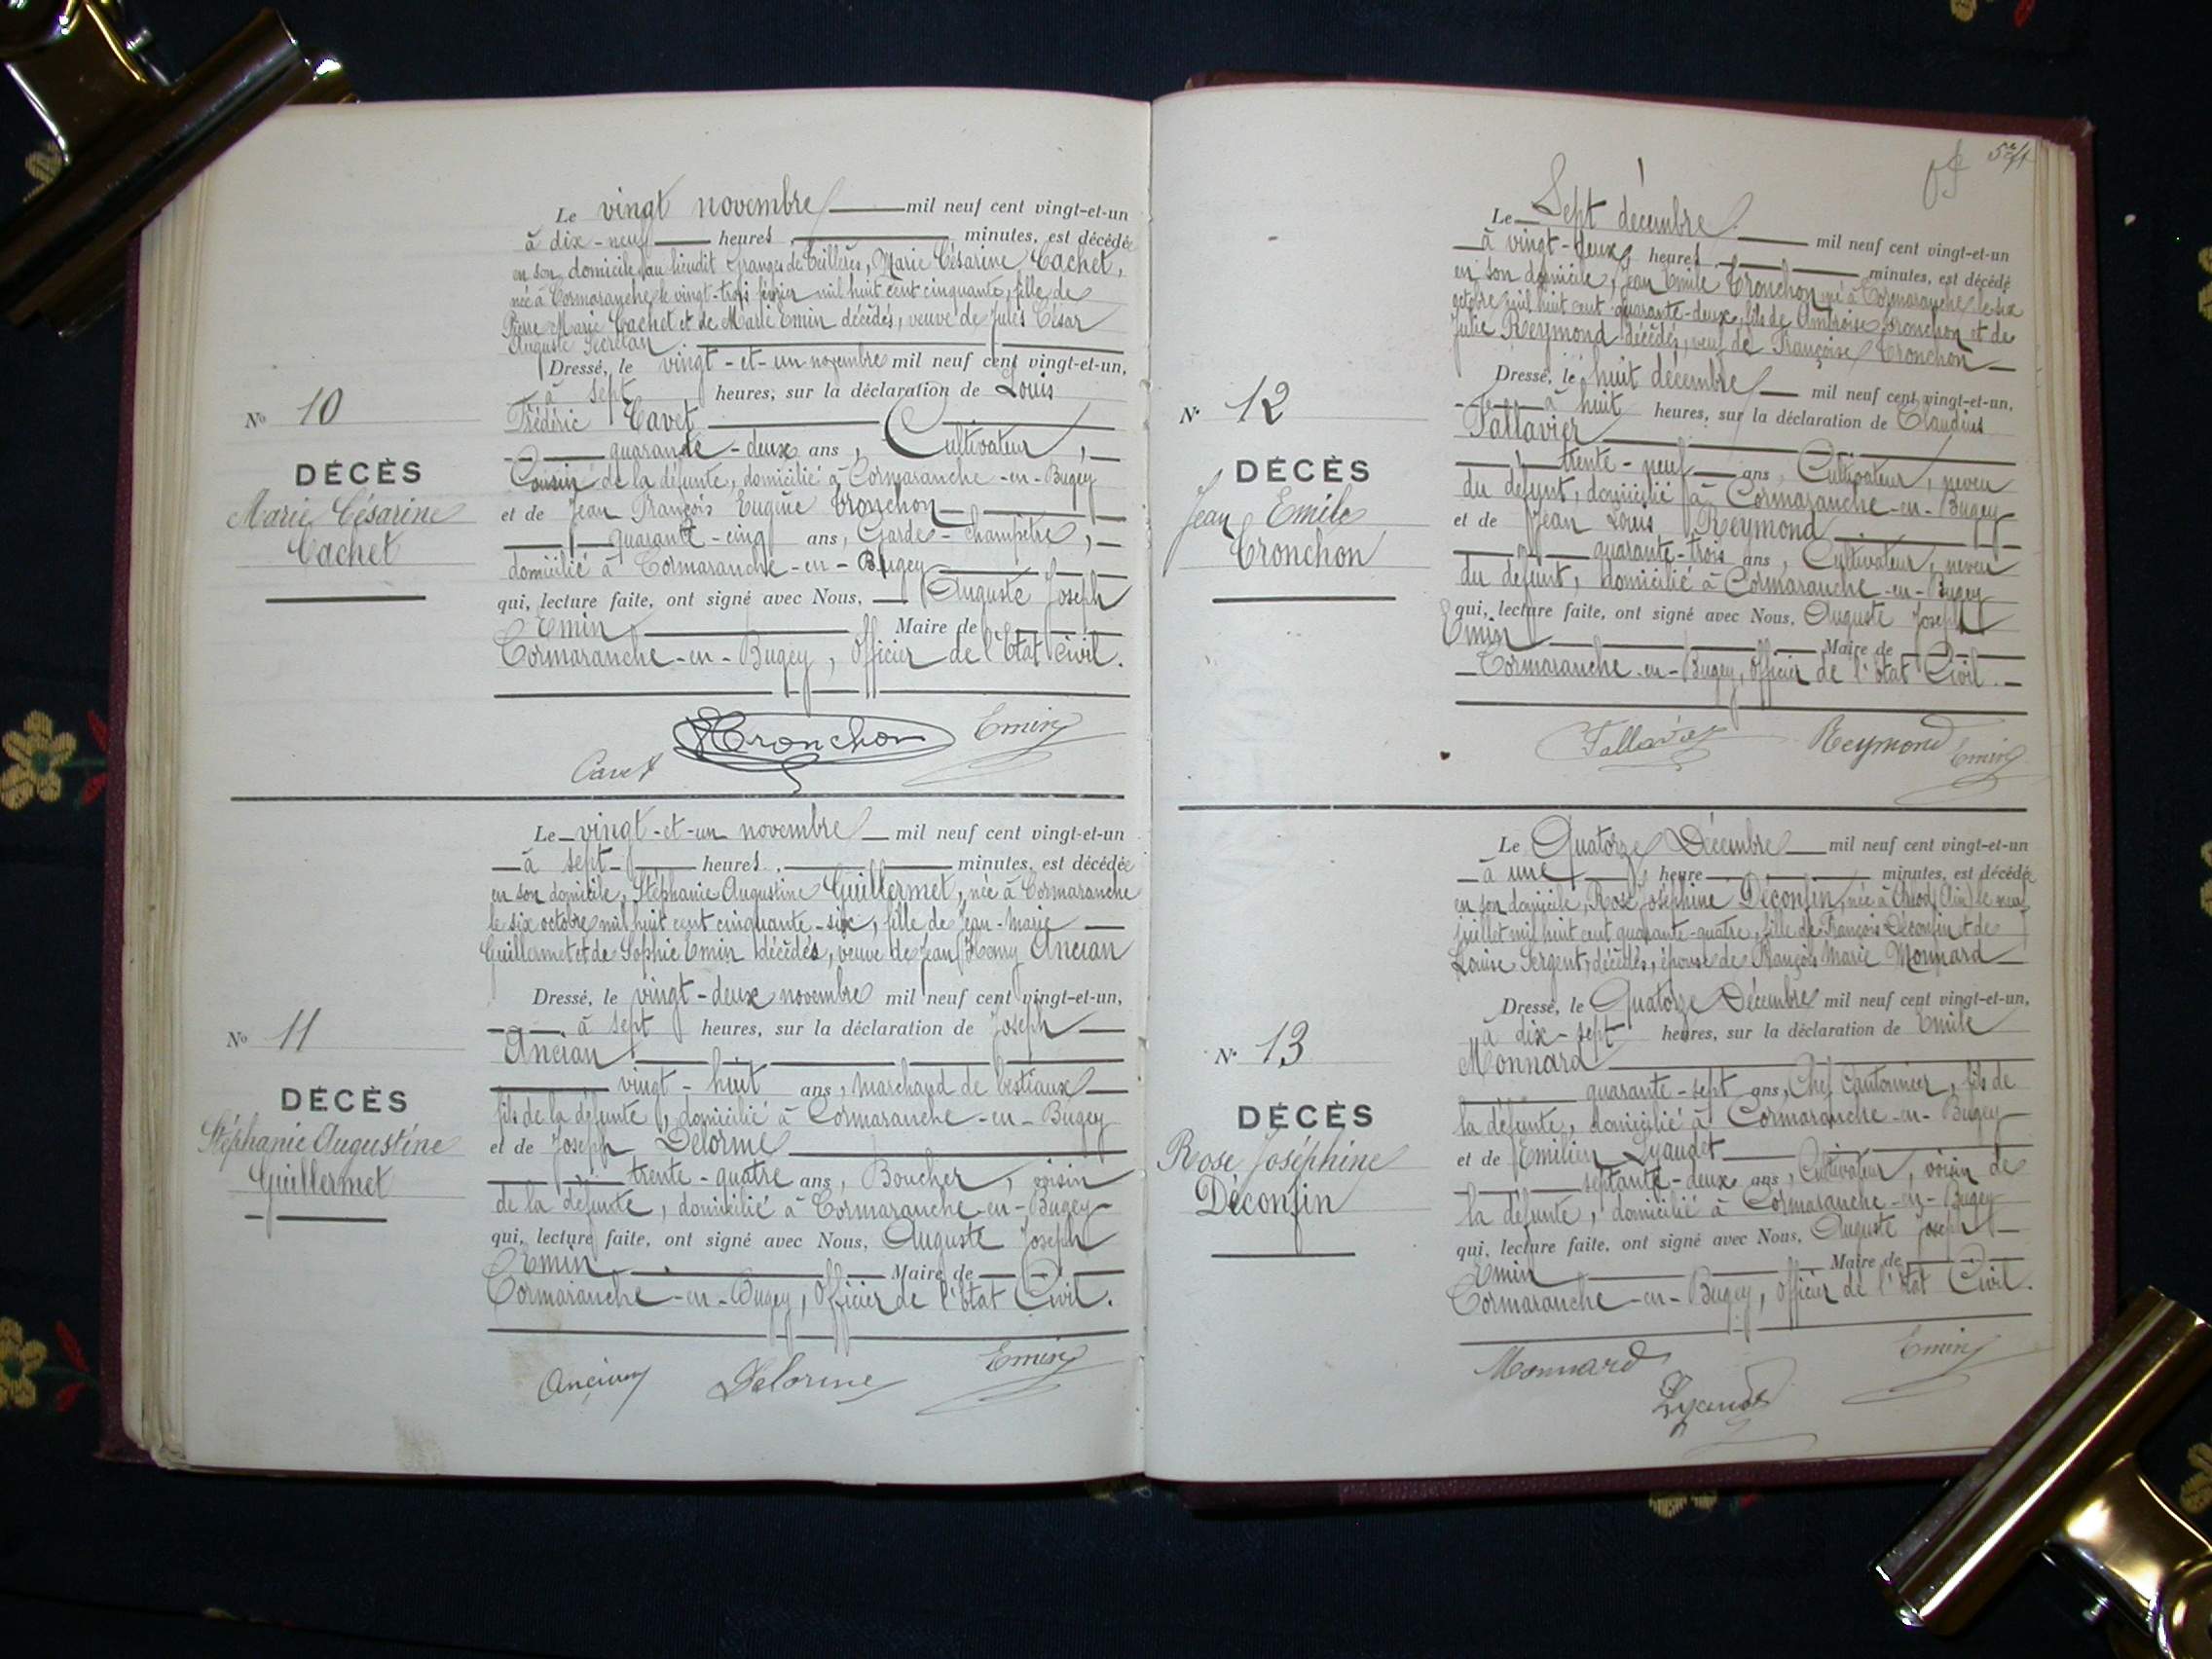 Le vingt novembre mil neuf cent vingt-et-un
à dix-neuf heures, minutes, est décédée
en son domicile au lieudit Granges de Ceillères, Marie Césarine Cachet,
née à Cormaranche le vingt-trois février mil huit cent cinquante, fille de
Pierre Marie Cachet et de Marie Emin décédés, veuve de Jules César
Auguste Secrétan.
Dressé, le vingt-et-un novembre mil neuf cent vingt-et-un,
à sept heures, sur la déclaration de Louis
Frédéric Cavet
quarante-deux ans, Cultivateur,
Cousin de la défunte, domicilié à Cormaranche-en-Bugey
et de Jean François Eugène Tronchon
quarante-cinq ans, Garde-champêtre,
domicilié à Cormaranche-en-Bugey
qui, lecture faite, ont signé avec Nous, Auguste Joseph
Emin Maire de
Cormaranche-en-Bugey, Officier de l'Etat Civil.
Nº 10
DÉCÈS
Marie Césarine
Cachet
Cavet Tronchon Emin
Le vingt-et-un novembre mil neuf cent vingt-et-un
à sept heures, minutes, est décédée
en son domicile, Stéphanie Augustine Guillermet, née à Cormaranche
le six octobre mil huit cent cinquante-six, fille de Jean-Marie
Guillermet et de Sophie Emin décédés, veuve de Jean Remy Ancian
Dressé, le vingt-deux novembre mil neuf cent vingt-et-un,
à sept heures, sur la déclaration de Joseph
Ancian
vingt-huit ans, marchand de bestiaux
fils de la défunte, domicilié à Cormaranche-en-Bugey
et de Joseph Delorme
trente-quatre ans, Boucher, voisin
de la défunte, domicilié à Cormaranche-en-Bugey
qui, lecture faite, ont signé avec Nous, Auguste Joseph
Emin Maire de
Cormaranche-en-Bugey, Officier de l'Etat Civil.
Nº 11
DÉCÈS
Stéphanie Augustine
Guillermet
Ancian Delorme Emin
Le Sept décembre mil neuf cent vingt-et-un
à vingt-deux heures, minutes, est décédé
en son domicile, Jean Emile Tronchon né à Cormaranche le six
octobre mil huit cent quarante-deux, fils de Ambroise Tronchon et de
Julie Reymond décédés, veuf de Françoise Tronchon
Dressé, le huit décembre mil neuf cent vingt-et-un,
à huit heures, sur la déclaration de Claudius
Tallavier
trente-neuf ans, Cultivateur, neveu
du défunt, domicilié à Cormaranche-en-Bugey
et de Jean Louis Reymond
quarante-trois ans, Cultivateur, neveu
du défunt, domicilié à Cormaranche-en-Bugey
qui, lecture faite, ont signé avec Nous, Auguste Joseph
Emin Maire de
Cormaranche-en-Bugey, Officier de l'Etat Civil.
Nº 12
DÉCÈS
Jean Emile
Tronchon
Tallavier Reymond Emin
Le Quatorze Décembre mil neuf cent vingt-et-un
à une heure minutes, est décédée
en son domicile, Rose Joséphine Déconfin, née à (Ain) le neuf
juillet mil huit cent quarante-quatre, fille de François Déconfin et de
Louise Sergent, décédés, épouse de François Marie Monnard
Dressé, le Quatorze Décembre mil neuf cent vingt-et-un,
à dix-sept heures, sur la déclaration de Emile
Monnard
quarante-sept ans, Chef Cantonnier, fils de
la défunte, domicilié à Cormaranche-en-Bugey
et de Emilien Lyaudet
septante-deux ans, Cultivateur, voisin de
la défunte, domicilié à Cormaranche-en-Bugey
qui, lecture faite, ont signé avec Nous, Auguste Joseph
Emin Maire de
Cormaranche-en-Bugey, Officier de l'Etat Civil.
Nº 13
DÉCÈS
Rose Joséphine
Déconfin
Monnard Lyaudet Emin